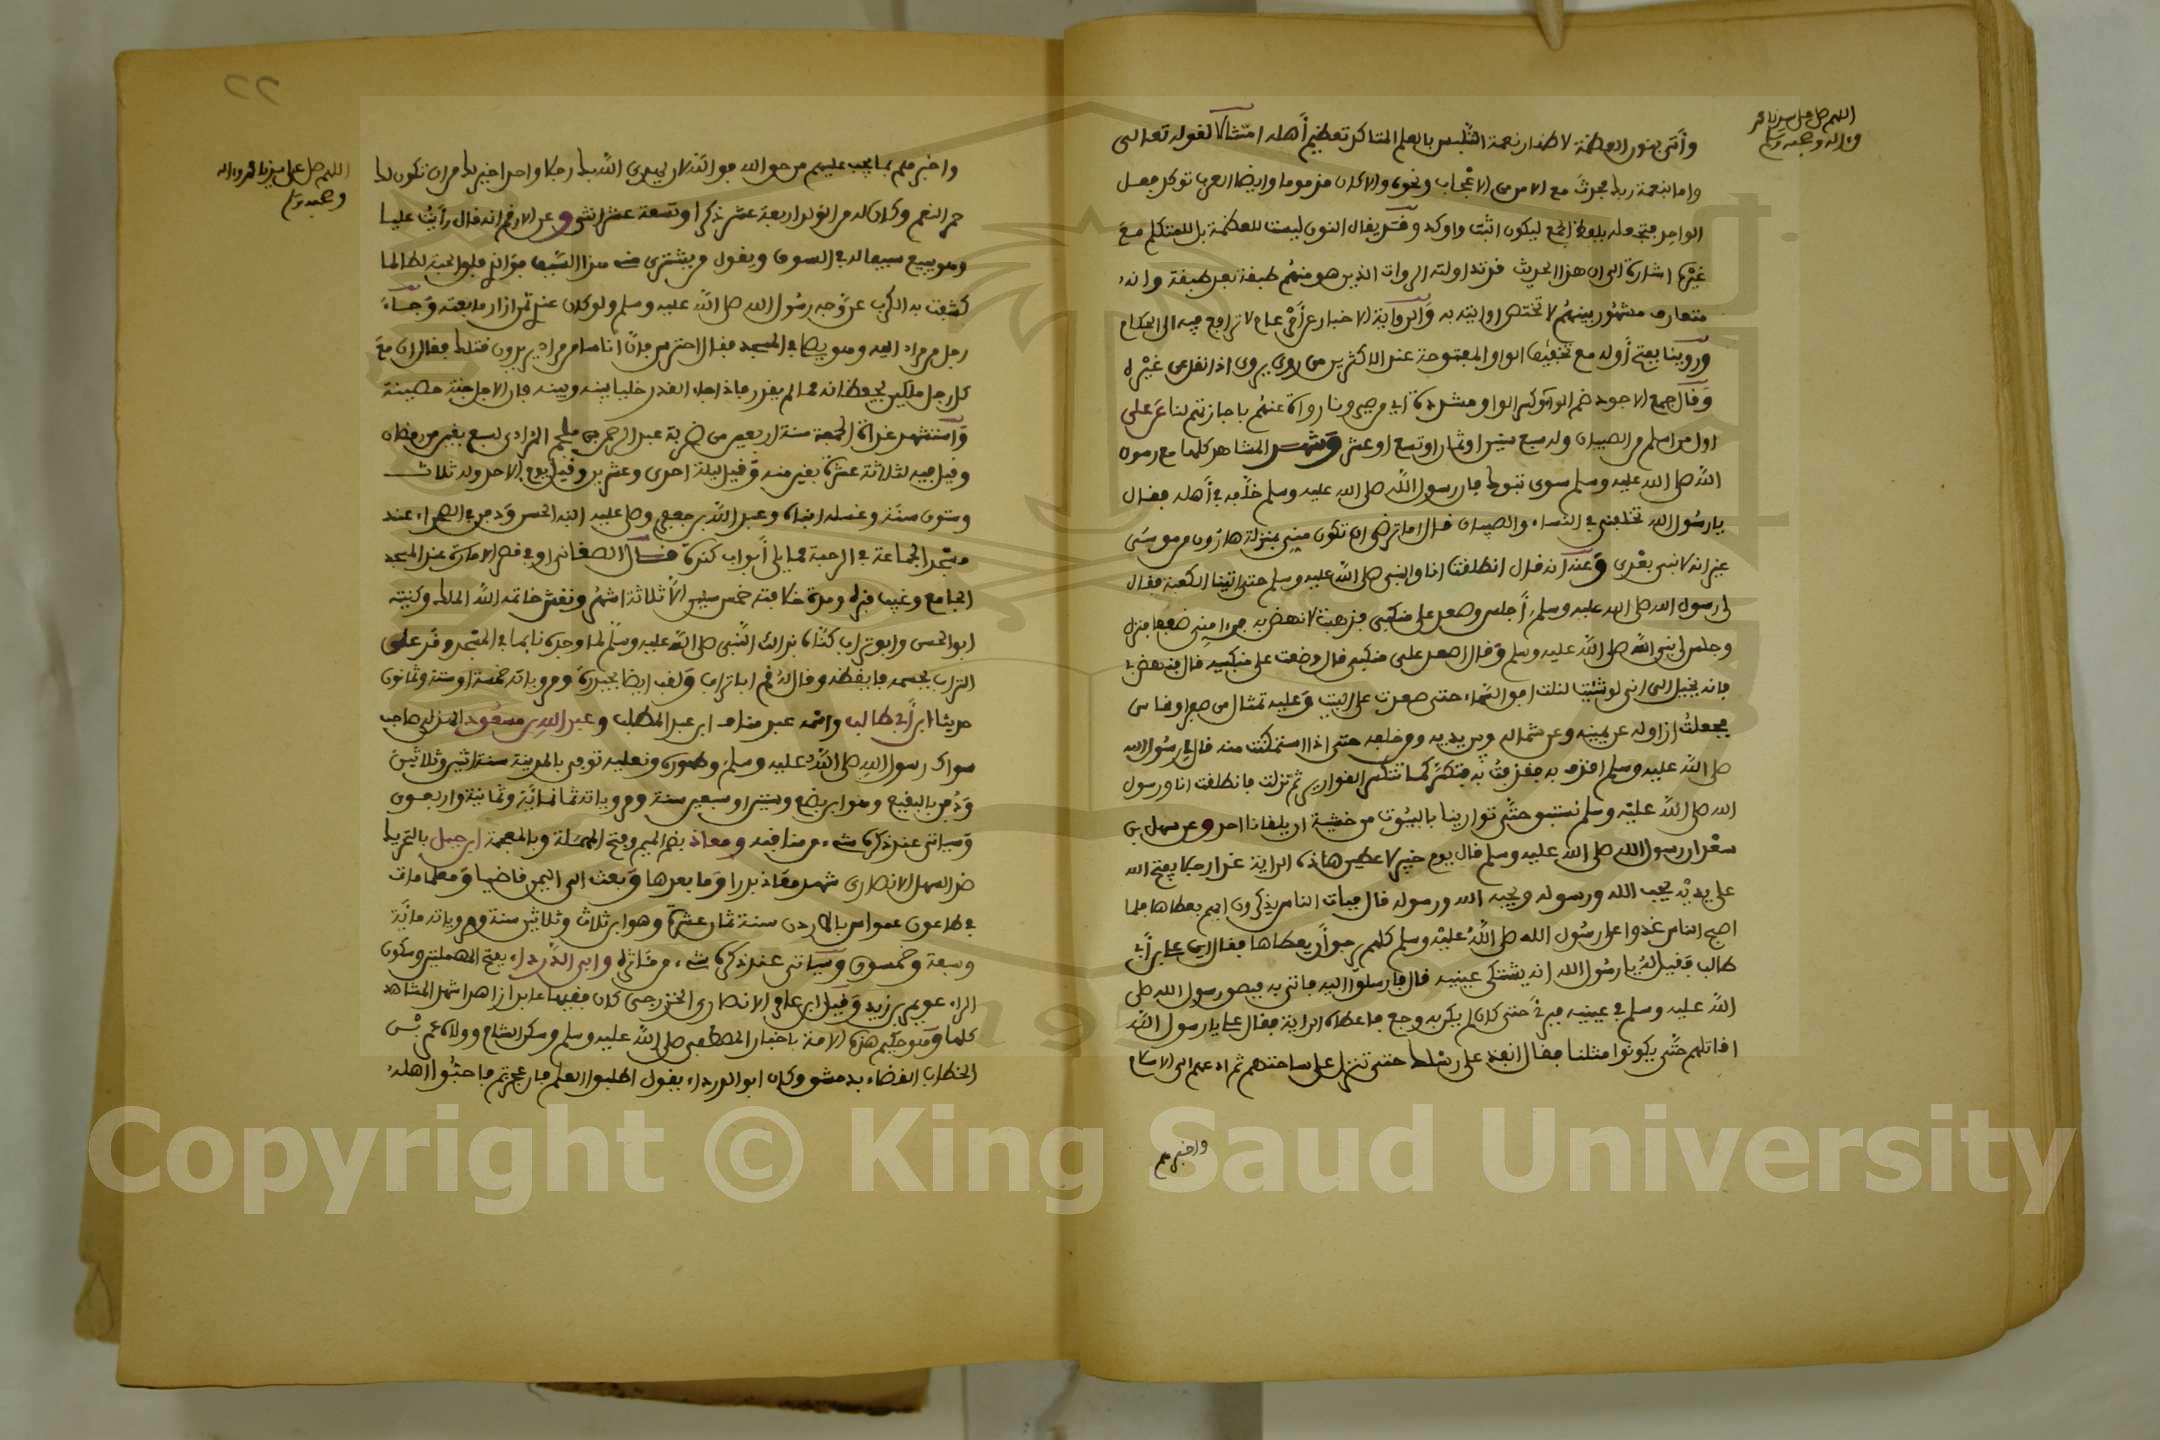 اللهم صل على سيدنا محمد
وءاله وصحبه وسلم
وأتى بنون العظمة لاظهار نعمة التلبس بالعلم المتاكد تعظيم أهله امتثالا لقوله تعالى
واما بنعمة ربك فحدث مع الامن من الاعجاب ونحوه والا كان مذموما وايضا العرب توكد فعل
الواحد فتجعله بلفظ الجمع ليكون اثبت واوكد وقد يقال النون ليست للعظمة بل للمتكلم مع
غيره اشارة الى ان هذا الحديث قد تداولته الروات الذين هو منهم طبقة بعد طبقة وانه
متعارف مشهور بينهم لا تختص روايته به والرواية الاخبار عن أمر عام لا ترافع فيه الى الحكام
وروينا بفتح أوله مع تخفيف الواو المفتوحة عند الاكثر من روى يروي اذا نقل عن غيره
وقال جمع الاجود ضم الراء وكسر الواو مشددة اي صيرونا رواة عنهم باجازتهم لنا عن علي
اول من اسلم من الصبيان وله سبع سنين او ثمان او تسع او عشر وشهد المشاهد كلها مع رسول
الله صلى الله عليه وسلم سوى تبوك فان رسول الله صلى الله عليه وسلم خلفه في أهله فقال
يا رسول الله تخلفني في النساء والصبيان قال اما ترضى ان تكون مني بمنزلة هارون من موسى
غير انه لا نبي بعدي وعنه انه قال انطلقت انا والنبي صلى الله عليه وسلم حتى اتينا الكعبة فقال
لي رسول الله صلى الله عليه وسلم أجلس وصعد على منكبي فذهبت لانهض به فرءا مني ضعفا فنزل
وجلس لي نبي الله صلى الله عليه وسلم وقال اصعد على منكبي قال وضعت على منكبيه قال فنهض بي
فانه يخيل الي اني لو شئت لنلت افق السماء حتى صعدت على البيت وعليه تمثال من صفر او نحاس
فجعلت ازاوله عن يمينه وعن شماله وبين يديه ومن خلفه حتى اذا استمكنت منه قال لي رسول الله
صلى الله عليه وسلم اقذف به فقذفت به فتكسر كما تتكسر القوارير ثم نزلت فانطلقت انا ورسول
الله صلى الله عليه وسلم نستبق حتى توارينا بالبيوت من خشية ان يلقانا احد وعن سهل بن
سعد ان رسول الله صلى الله عليه وسلم قال يوم خيبر لاعطين هاذه الراية غدا رجلا يفتح الله
على يديه يحب الله ورسوله ويحبه الله ورسوله قال فبات الناس يذكرون ايهم يعطاها فلما
اصبح الناس غدوا على رسول الله صلى الله عليه وسلم كلهم يرجو أن يعطاها فقال اين علي بن أبي
طالب فقيل له يا رسول الله انه يشتكي عينيه قال فارسلوا اليه فاتي به فبصق رسول الله صلى
الله عليه وسلم في عينيه فبرئ حتى كان لم يكن به وجع فاعطاه الراية فقال علي يا رسول الله
اقاتلهم حتى يكونوا مثلنا فقال انفذ على رسلك حتى تنزل على ساحتهم ثم ادعهم الى الاسلام
واخبرهم
٢٢
اللهم صل على سيدنا محمد وءاله
وصحبه وسلم
واخبرهم بما يجب عليهم من حق الله فوالله لان يهدي الله بك رجلا واحدا خير لك من ان تكون لك
حمر النعم وكان له من الولد اربعة عشر ذكرا وتسعة عشر انثى وعن الارقم انه قال رأيت عليا
وهو يبيع سيفا له في السوق ويقول من يشتري مني هذا السيف فوالذي فلق الحبة لطالما
كشفت به الكرب عن وجه رسول الله صلى الله عليه وسلم ولو كان عندي ثمن ازار ما بعته وجاء
رجل من مراد اليه وهو يصلي في المسجد فقال احترس فان اناسا من مراد يريدون قتلك فقال ان مع
كل رجل ملكين يحفظانه مما لم يقدر فاذا جاء القدر خليا بينه وبينه فان الاجل جنة حصينة
واستشهد غداة الجمعة سنة اربعين من ضربة عبد الرحمن بن ملجم المرادي لسبع بقين من رمضان
وقيل فيه لثلاثة عشرة بقين منه وقيل ليلة احدى وعشرين وقيل يوم الاحد وله ثلاث
وستون سنة وغسله ابناه وعبد الله بن جعفر وصلى عليه ابنه الحسن ودفن في الصحراء عند
مسجد الجماعة في الرحبة مما يلي أبواب كندة قال الصغاني او في قصر الامارة عند المسجد
الجامع وغيب قبره ومدة خلافته خمس سنين الا ثلاثة اشهر ونقش خاتمه الله الملك وكنيته
ابو الحسن وابو تراب كناه بذالك النبي صلى الله عليه وسلم لما وجده نائما في المسجد وقد علق
التراب بجسمه فايقظه وقال له قم ابا تراب ولقب ايضا بحيدرة ومروياته خمسمائة وستة وثمانون
حديثا ابن أبي طالب واسمه عبد مناف ابن عبد المطلب وعبد الله بن مسعود الهذلي صاحب
سواك رسول الله صلى الله عليه وسلم وطهوره ونعليه توفي بالمدينة سنة اثنين وثلاثين
ودفن بالبقيع وهو ابن بضع وستين او سبعين سنة ومروياته ثمانمائة وثمانية واربعون
وسياتي عند ذكره شيء من مناقبه ومعاذ بضم الميم وفتح المهملة وبالمعجمة ابن جبل بالتحريك
ضد السهل الانصاري شهد معاذ بدرا وما بعدها وبعث الى اليمن قاضيا ومعلما مات
في طاعون عمواس بالاردن سنة ثمان عشرة وهو ابن ثلاث وثلاثين سنة ومروياته مائة
وسبعة وخمسون وسياتي عند ذكره شيء من مئاثره وابي الدرداء بفتح المهملتين وسكون
الراء عويمر بن زيد وقيل ابن عامر الانصاري الخزرجي كان فقيها عابدا زاهدا شهد المشاهد
كلها وهو حكيم هذه الامة باخبار المصطفى صلى الله عليه وسلم وسكن الشام وولاه عمر بن
الخطاب القضاء بدمشق وكان ابو الدرداء يقول اطلبوا العلم فان عجزتم فاحبوا اهله
Copyright © King Saud University